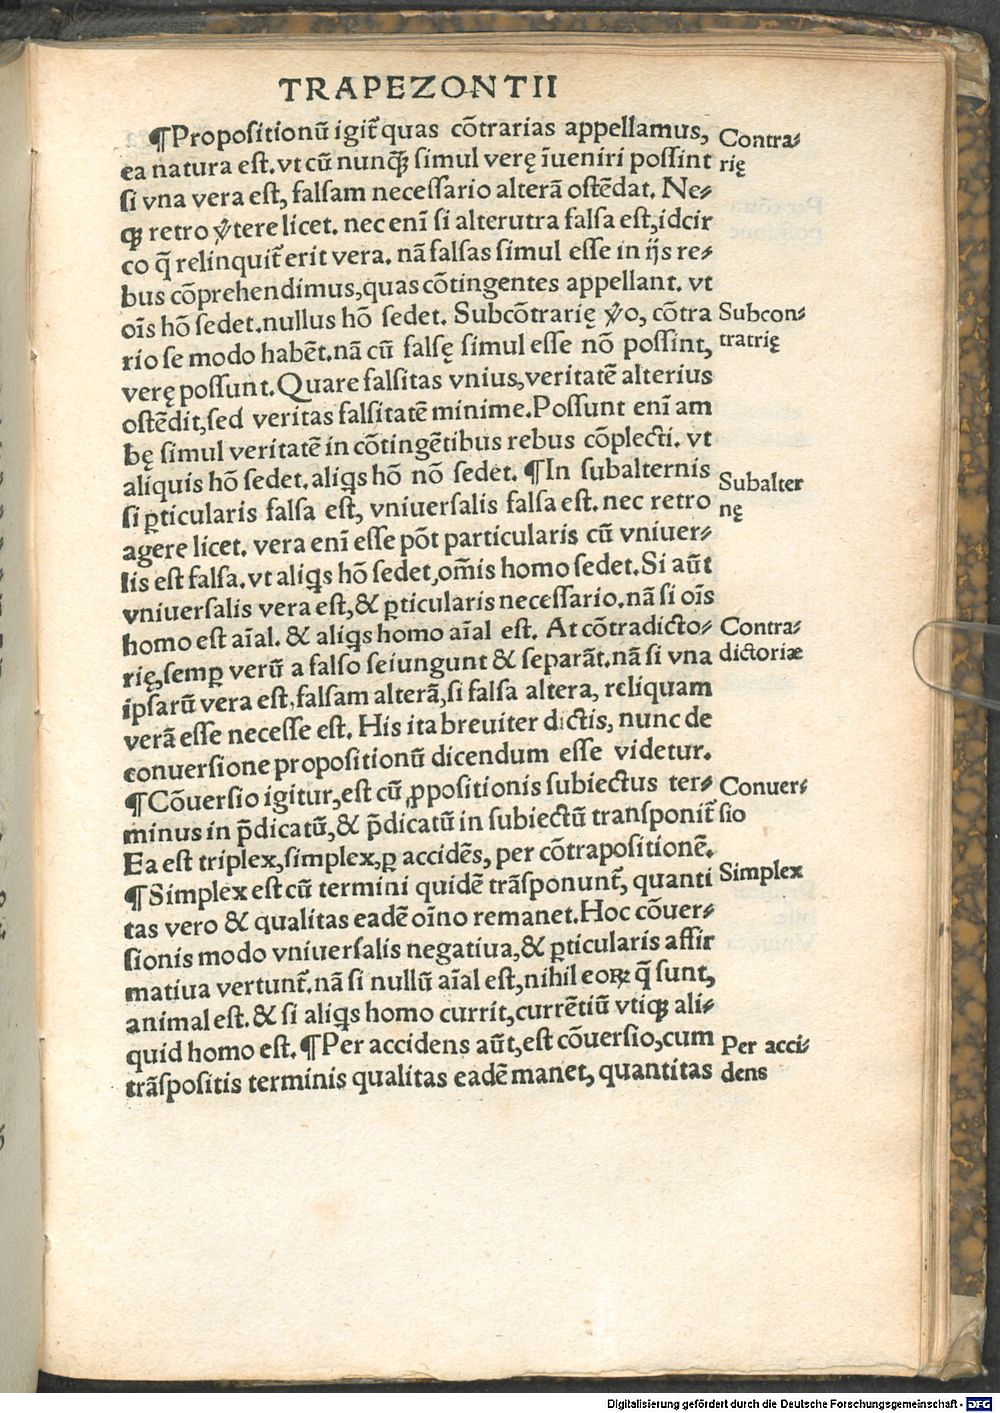 TRAPEZONTII
¶Propositionū igit̃ quas cōtrarias appellamus, Contra⸗
ea natura est. vt cū nunq̄ꝫ simul verę īueniri possint rię
si vna vera est, falsam necessario alterā ostēdat. Ne⸗
qꝫ retro v̾tere licet. nec enī si alterutra falsa est, idcir
co q̄ relinquit̃ erit vera. nā falsas simul esse in ijs re⸗
bus cōprehendimus, quas cōtingentes appellant. vt
oīs hō sedet. nullus hō sedet. Subcōtrarię v̾o, cōtra Subcon⸗
rio se modo habēt. nā cū falsę simul esse nō possint, tratrię
verę possunt. Quare falsitas vnius, veritatē alterius
ostēdit, sed veritas falsitatē minime. Possunt enī am
bę simul veritatē in cōtingētibus rebus cōplecti. vt
aliquis hō sedet. aliq̇s hō nō sedet. ¶In subalternis Subalter
si ꝑticularis falsa est, vniuersalis falsa est. nec retro nę
agere licet. vera enī esse pōt particularis cū vniuer⸗
lis est falsa. vt aliq̇s hō sedet, om̄is homo sedet. Si aūt
vniuersalis vera est, & ꝑticularis necessario. nā si oīs
homo est aīal. & aliq̇s homo aīal est. At cōtradicto⸗ Contra⸗
rię, semꝑ verū a falso seiungunt & separāt. nā si vna dictoriæ
ipsarū vera est, falsam alterā, si falsa altera, reliquam
verā esse necesse est. His ita breuiter dictis, nunc de
conuersione propositionū dicendum esse videtur.
¶Cōuersio igitur, est cū ꝓpositionis subiectus ter⸗ Conuer⸗
minus in p̄dicatū, & p̄dicatū in subiectū transponit̃ sio
Ea est triplex, simplex, ꝑ accidēs, per cōtrapositionē.
¶Simplex est cū termini quidē trāsponunt̃, quanti Simplex
tas vero & qualitas eadē oīno remanet. Hoc cōuer⸗
sionis modo vniuersalis negatiua, & ꝑticularis affir
matiua vertunt̃. nā si nullū aīal est, nihil eoꝝ q̄ sunt,
animal est. & si aliq̇s homo currit, currētiū vtiqꝫ ali⸗
quid homo est. ¶Per accidens aūt, est cōuersio, cum Per acci⸗
trāspositis terminis qualitas eadē manet, quantitas dens
Digitalisierung gefördert durch die Deutsche Forschungsgemeinschaft - DFG